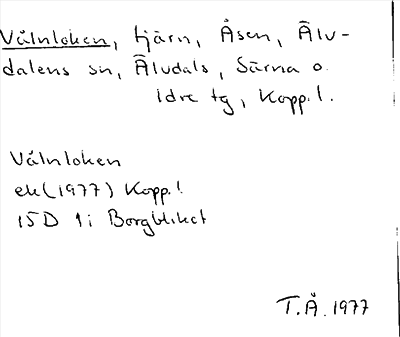 Vålnloken, tjärn, Åsen, Älv-
dalens sn, Älvdals, Särna o.
Idre tg, Kopp. l.
Vålnloken
ek (1977) Kopp. l
15D 1i Borgbliket
T.Å. 1977